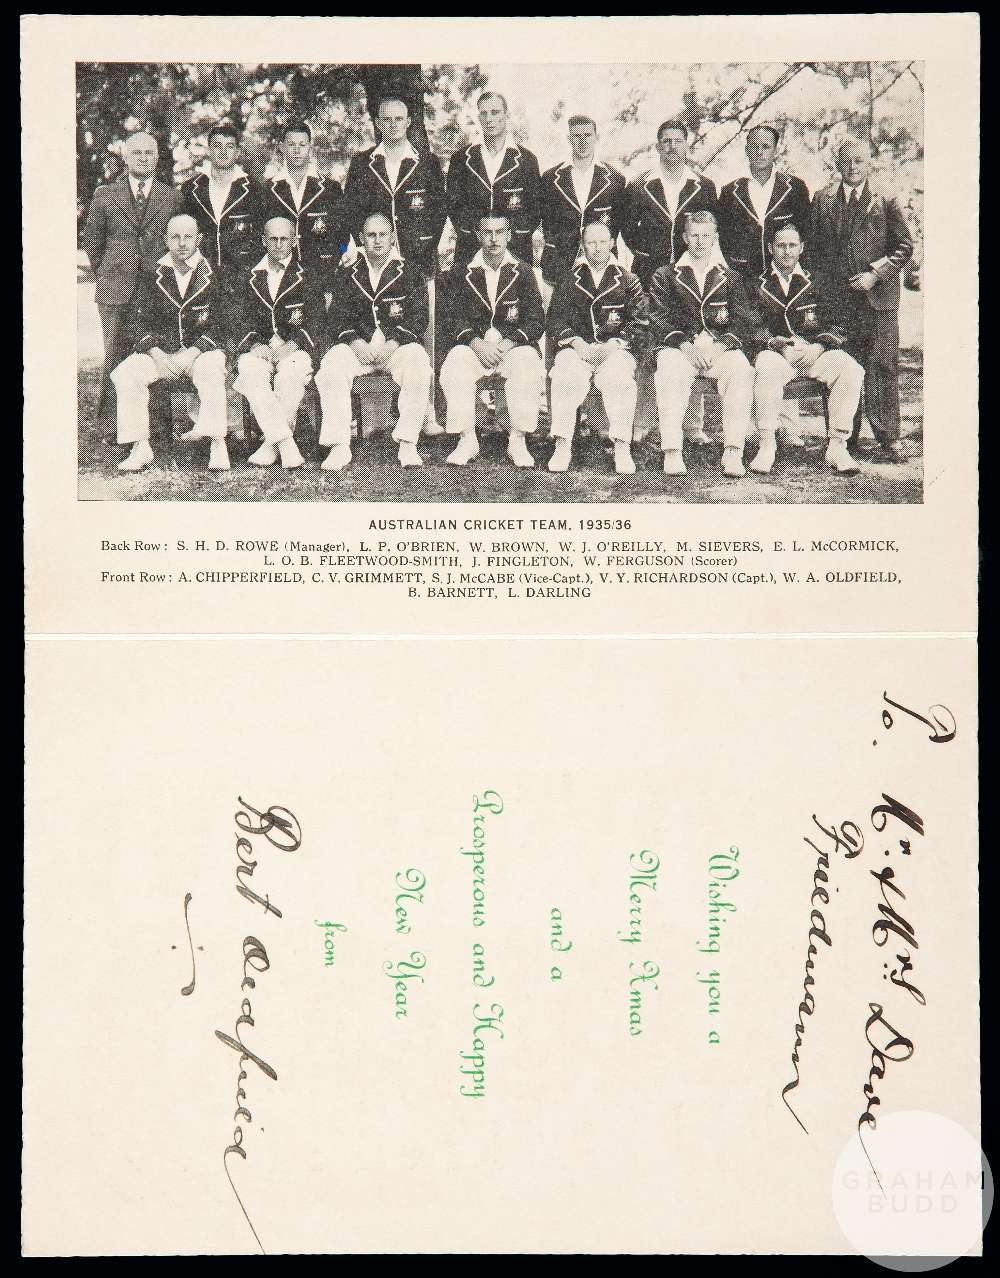 AUSTRALIAN CRICKET TEAM, 1935/36
Back Row: S. H. D. ROWE (Manager), L. P. O'BRIEN, W. BROWN, W. J. O'REILLY, M. SIEVERS, E. L. McCORMICK,
L. O. B. FLEETWOOD-SMITH, J. FINGLETON, W. FERGUSON (Scorer)
Front Row: A. CHIPPERFIELD, C. V. GRIMMETT, S. J. McCABE (Vice-Capt.), V. Y. RICHARDSON (Capt.), W. A. OLDFIELD,
B. BARNETT, L. DARLING
To. Mr. & Mrs. Dave
Friedmann
Wishing you a
Merry Xmas
and a
Prosperous and Happy
New Year
from
Bert Oldfield
GRAHAM
BUDD